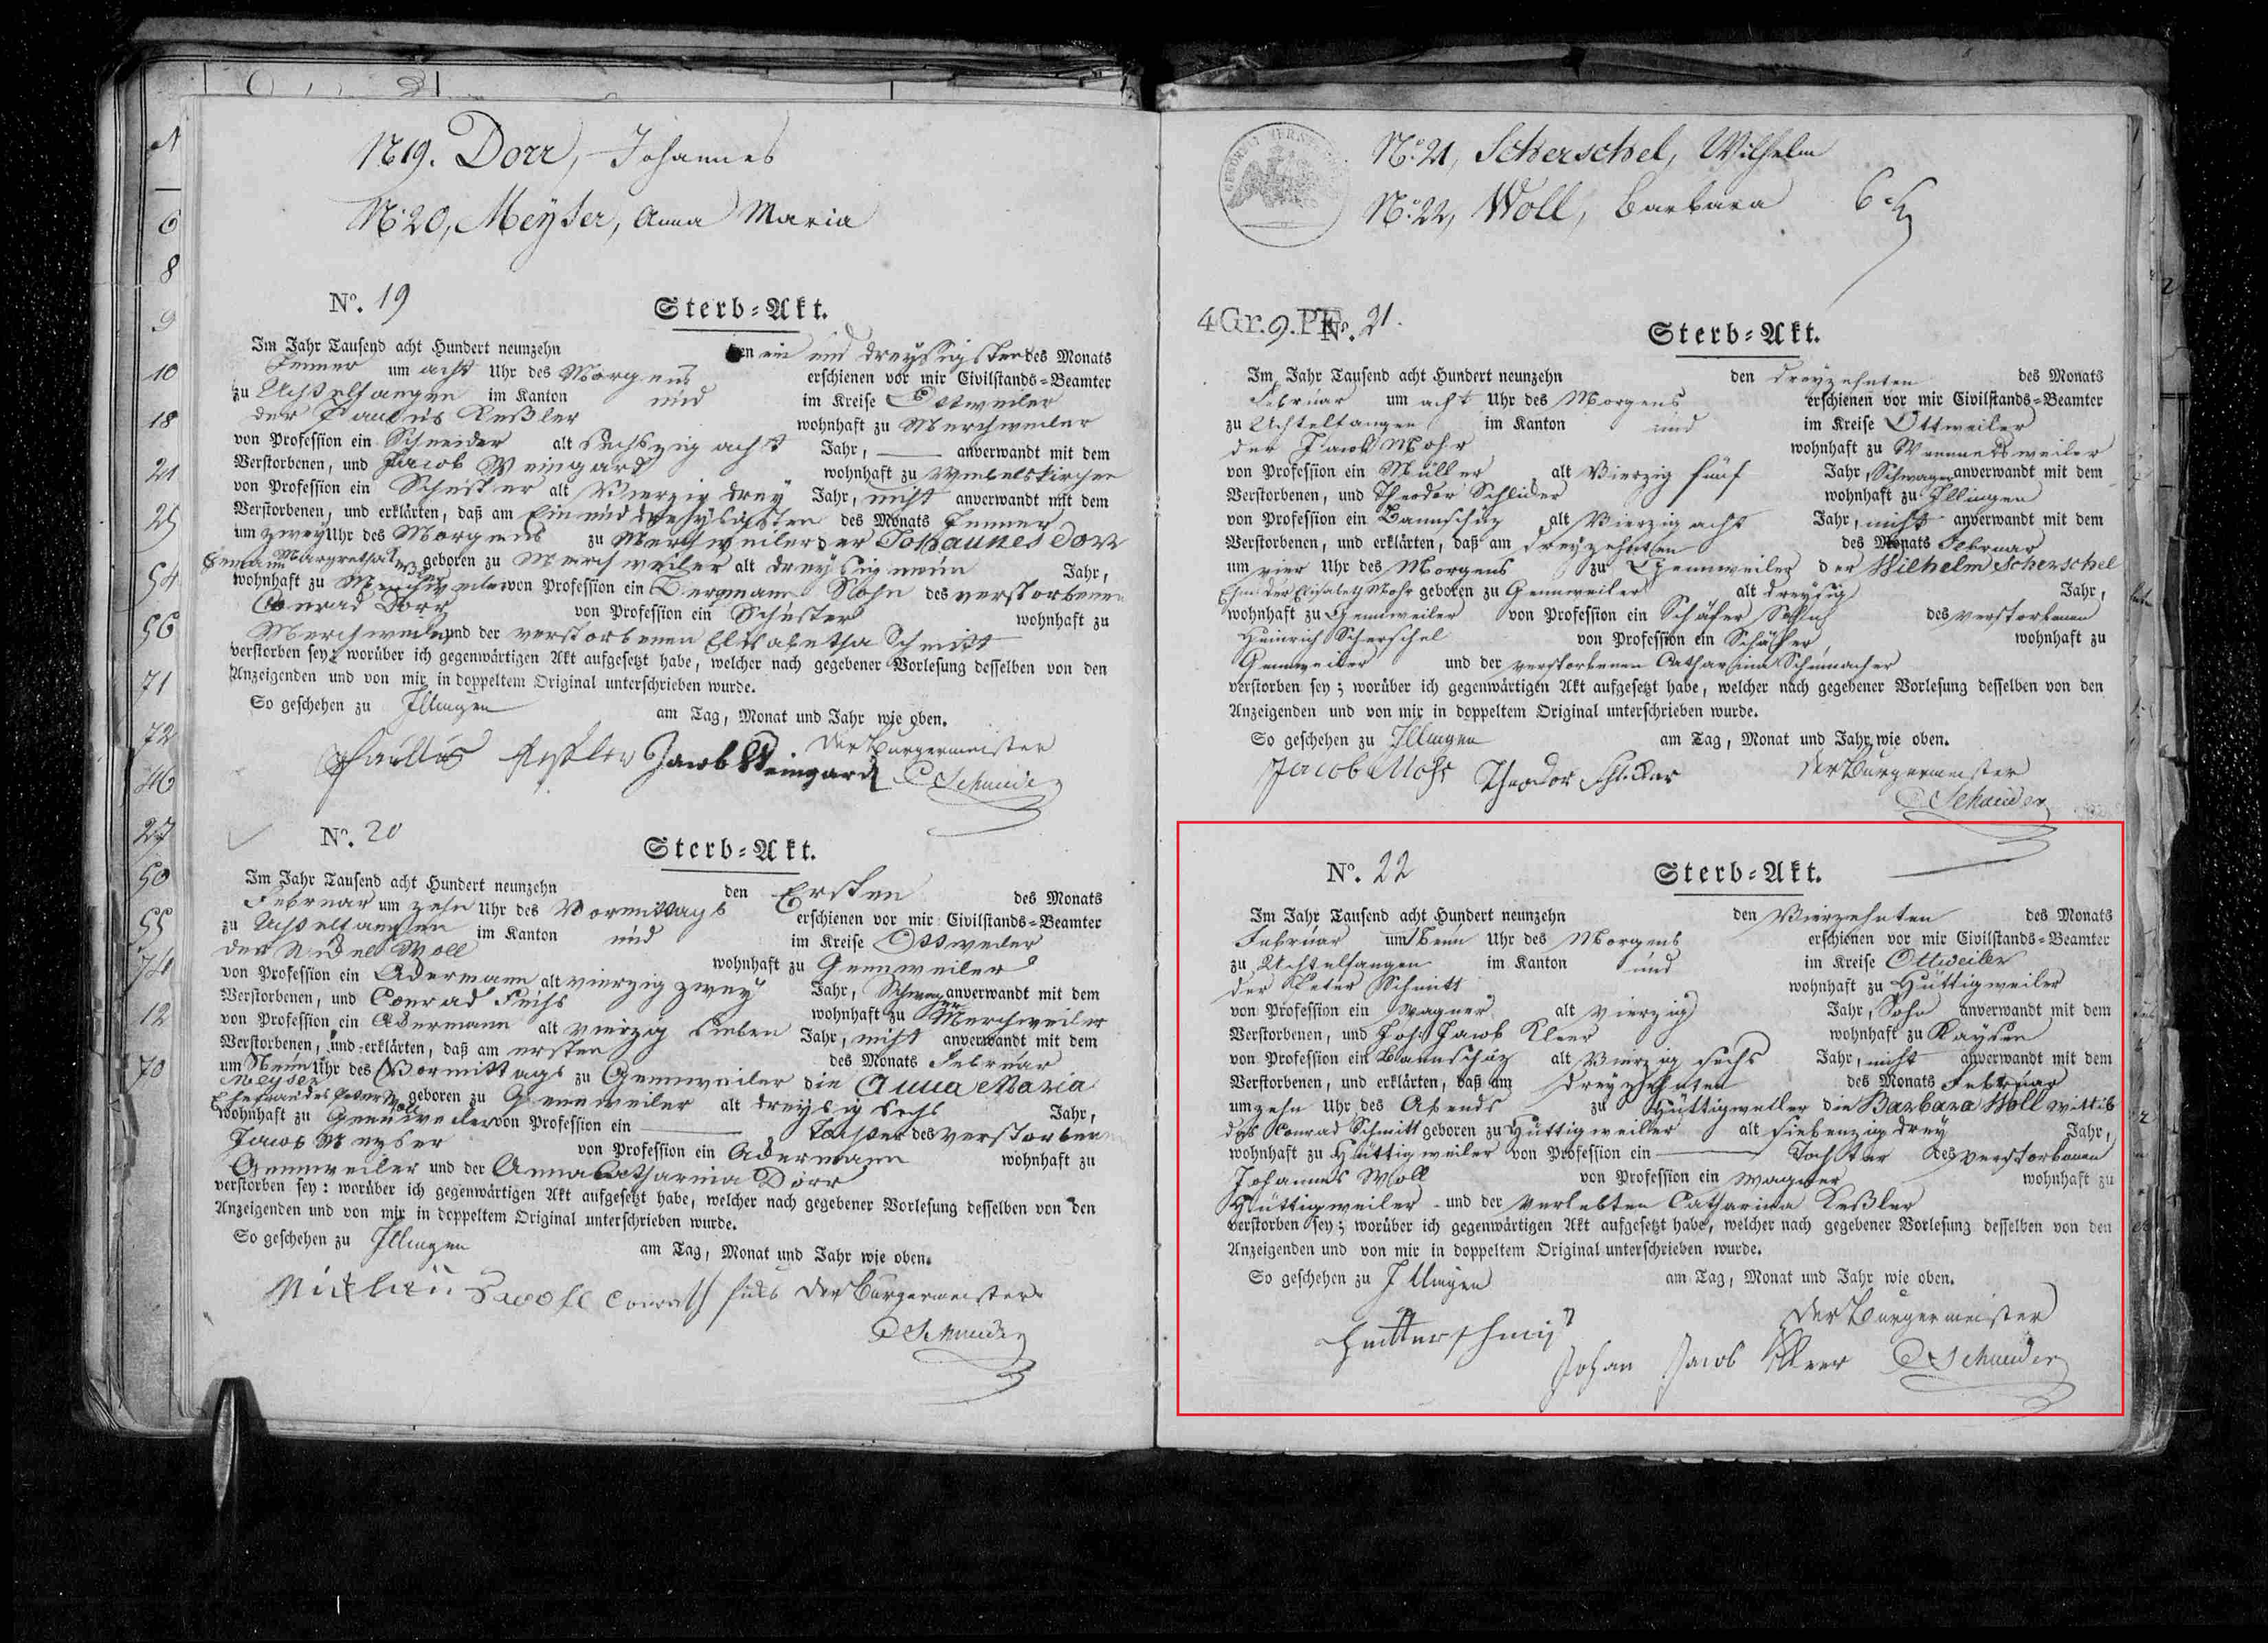 N 19. Dorr, Johannes
N° 20, Meyser, Anna Maria
No. 19
Sterb-Akt.
Im Jahr Tausend acht Hundert neunzehn den ein und dreysigsten des Monats
Jenner um acht Uhr des Morgens erschienen vor mir Civilstands-Beamter
zu Uchtelfangen im Kanton und im Kreise Ottweiler
der Paulus Keßler wohnhaft zu Merchweiler
von Profession ein Schneider alt sechszig acht Jahr, — anverwandt mit dem
Verstorbenen, und Jacob Weingard wohnhaft zu Wiebelskirchen
von Profession ein Schuster alt Vierzig drey Jahr, nicht anverwandt mit dem
Verstorbenen, und erklärten, daß am Ein und dreysigsten des Monats Jenner
um zwey Uhr des Morgens zu Merchweiler der Johannes Dorr
Margretha geboren zu Merchweiler alt dreysig neun Jahr,
wohnhaft zu Merchweiler von Profession ein Bergmann Sohn des verstorbenen
Conrad Dorr von Profession ein Schuster wohnhaft zu
Merchweiler und der verstorbenen Elisabetha Schmitt
verstorben sey; worüber ich gegenwärtigen Akt aufgesetzt habe, welcher nach gegebener Vorlesung desselben von den
Anzeigenden und von mir in doppeltem Original unterschrieben wurde.
So geschehen zu Illingen am Tag, Monat und Jahr wie oben.
Der Bürgermeister
Paullus Keßler Jacob Weingard Schneider
No. 20
Sterb-Akt.
Im Jahr Tausend acht Hundert neunzehn den Ersten des Monats
Februar um zehn Uhr des Vormittags erschienen vor mir Civilstands-Beamter
zu Uchtelfangen im Kanton und im Kreise Ottweiler
der Nickel Woll wohnhaft zu Gennweiler
von Profession ein Ackermann alt vierzig zwey Jahr, Schwager anverwandt mit dem
Verstorbenen, und Conrad Fuchs wohnhaft zu Merchweiler
von Profession ein Ackermann alt vierzig sieben Jahr, nicht anverwandt mit dem
Verstorbenen, und erklärten, daß am ersten des Monats Februar
um Neun Uhr des Vormittags zu Gennweiler die Anna Maria
Meyser
Ehefrau des Peter Woll geboren zu Gennweiler alt dreysig sechs Jahr,
wohnhaft zu Gennweiler von Profession ein — Tochter des verstorbenen
Jacob Meyser von Profession ein Ackermann wohnhaft zu
Gennweiler und der Anna Catharina Dörr
verstorben sey: worüber ich gegenwärtigen Akt aufgesetzt habe, welcher nach gegebener Vorlesung desselben von den
Anzeigenden und von mir in doppeltem Original unterschrieben wurde.
So geschehen zu Illingen am Tag, Monat und Jahr wie oben.
Conrath Fuchs Der Bürgermeister
Schneider
N° 21, Scherschel, Wilhelm
N° 22, Woll, Barbara
4 Gr. 9. PF. No. 21.
Sterb-Akt.
Im Jahr Tausend acht Hundert neunzehn den dreyzehnten des Monats
Februar um acht Uhr des Morgens erschienen vor mir Civilstands-Beamter
zu Uchtelfangen im Kanton und im Kreise Ottweiler
der Jacob Mohr wohnhaft zu Wemmetsweiler
von Profession ein Müller alt Vierzig fünf Jahr, Schwager anverwandt mit dem
Verstorbenen, und Theodor Schlicker wohnhaft zu Illingen
von Profession ein Bannschütz alt Vierzig acht Jahr, nicht anverwandt mit dem
Verstorbenen, und erklärten, daß am dreyzehnten des Monats Februar
um vier Uhr des Morgens zu Gennweiler der Wilhelm Scherschel
Ehm. der Elisabeth Mohr geboren zu Gennweiler alt dreysig Jahr,
wohnhaft zu Gennweiler von Profession ein Schäfer Sohn des verstorbenen
Heinrich Scherschel von Profession ein Schäffer, wohnhaft zu
Gennweiler und der verstorbenen Catharina Schumacher
verstorben sey; worüber ich gegenwärtigen Akt aufgesetzt habe, welcher nach gegebener Vorlesung desselben von den
Anzeigenden und von mir in doppeltem Original unterschrieben wurde.
So geschehen zu Illingen am Tag, Monat und Jahr wie oben.
Jacob Mohr Theodor Schlicker Der Bürgermeister
Schneider
No. 22
Sterb-Akt.
Im Jahr Tausend acht Hundert neunzehn den Vierzehnten des Monats
Februar um Neun Uhr des Morgens erschienen vor mir Civilstands-Beamter
zu Uchtelfangen im Kanton und im Kreise Ottweiler
der Peter Schmitt wohnhaft zu Hüttigweiler
von Profession ein Wagner alt vierzig Jahr, Sohn anverwandt mit dem
Verstorbenen, und Joh. Jacob Kleer wohnhaft zu Kaysen
von Profession ein Bannschüz alt Vierzig sechs Jahr, nicht anverwandt mit dem
Verstorbenen, und erklärten, daß am dreyzehnten des Monats Februar
um zehn Uhr des Abends zu Hüttigweiller die Barbara Woll Wittib
des Conrad Schmitt geboren zu Hüttigweiller alt siebenzig drey Jahr,
wohnhaft zu Hüttigweiler von Profession ein — Tochter des verstorbenen
Johannes Woll von Profession ein Wagner wohnhaft zu
Hüttigweiler und der verlebten Catharina Keßler
verstorben sey; worüber ich gegenwärtigen Akt aufgesetzt habe, welcher nach gegebener Vorlesung desselben von den
Anzeigenden und von mir in doppeltem Original unterschrieben wurde.
So geschehen zu Illingen am Tag, Monat und Jahr wie oben.
Der Bürgermeister
Johan Jacob Kleer Schneider